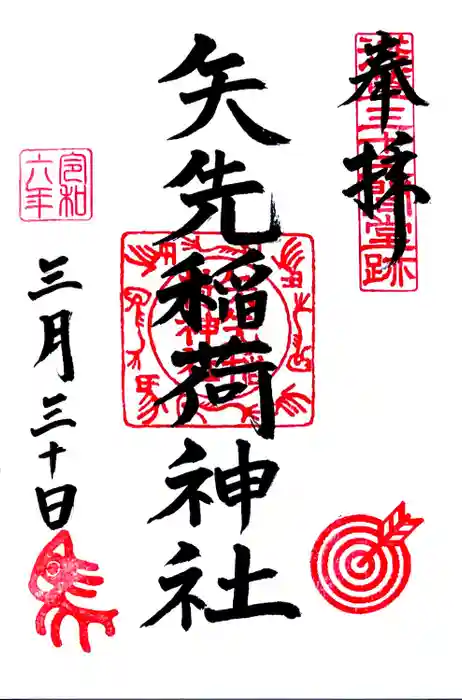 奉拝
浅草三十三間堂跡
矢先稲荷神社
令和
六年
三月三十日